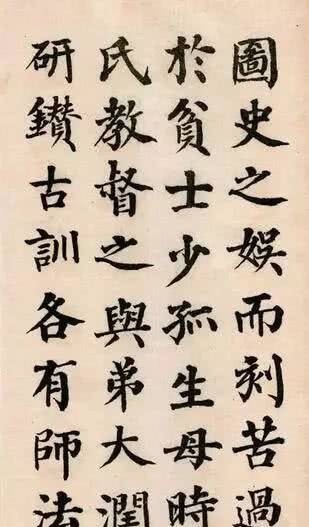 圖史之娛而刻苦過
於貧士少孤生母時
氏教督之與弟大潤
研鑽古訓各有師法